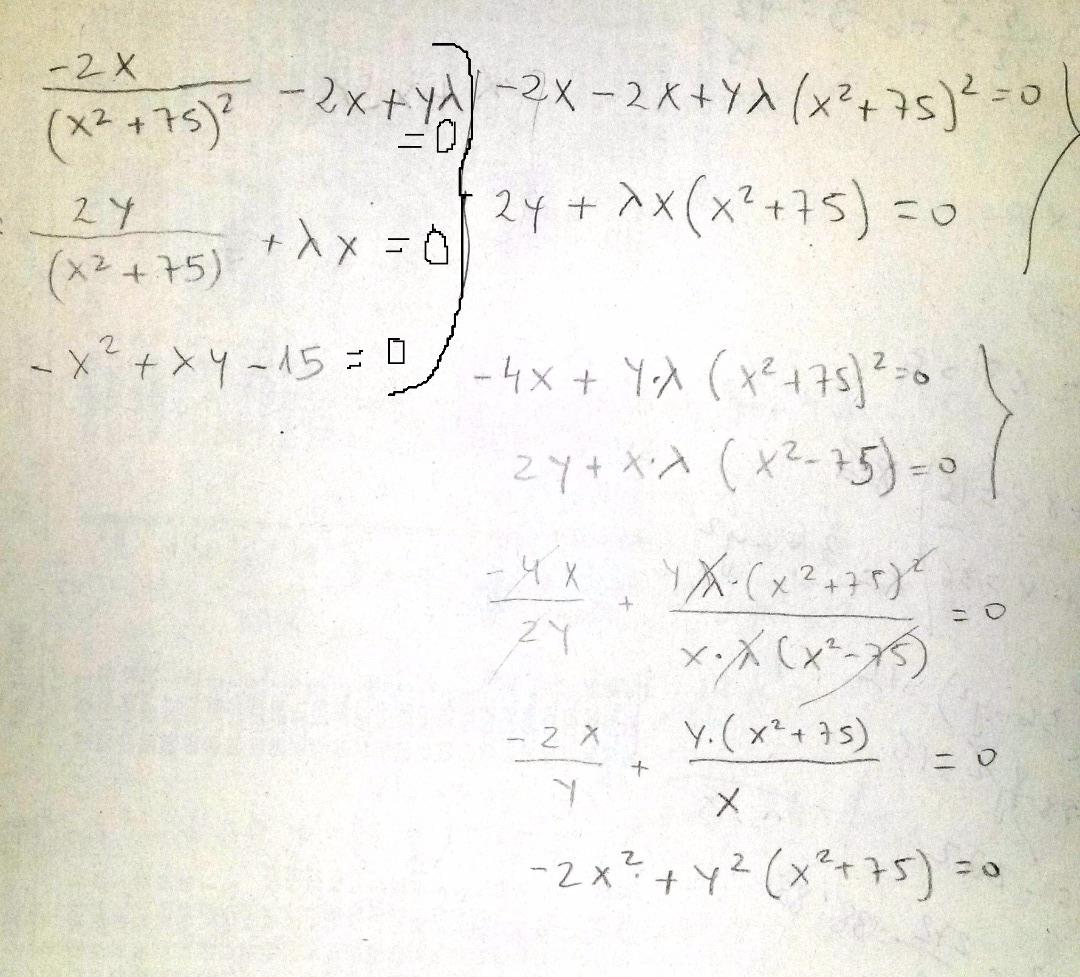 -2x/(x²+75)² - 2x+yλ = 0
2y/(x²+75) + λx = 0
-x² + xy - 15 = 0
-2x - 2x + yλ(x²+75)² = 0
2y + λx(x²+75) = 0
-4x + y·λ (x²+75)² = 0
2y + x·λ (x²-75) = 0
-4x/2y + yλ·(x²+75)²/x·λ(x²-75) = 0
-2x/y + y·(x²+75)/x = 0
-2x² + y²(x²+75) = 0